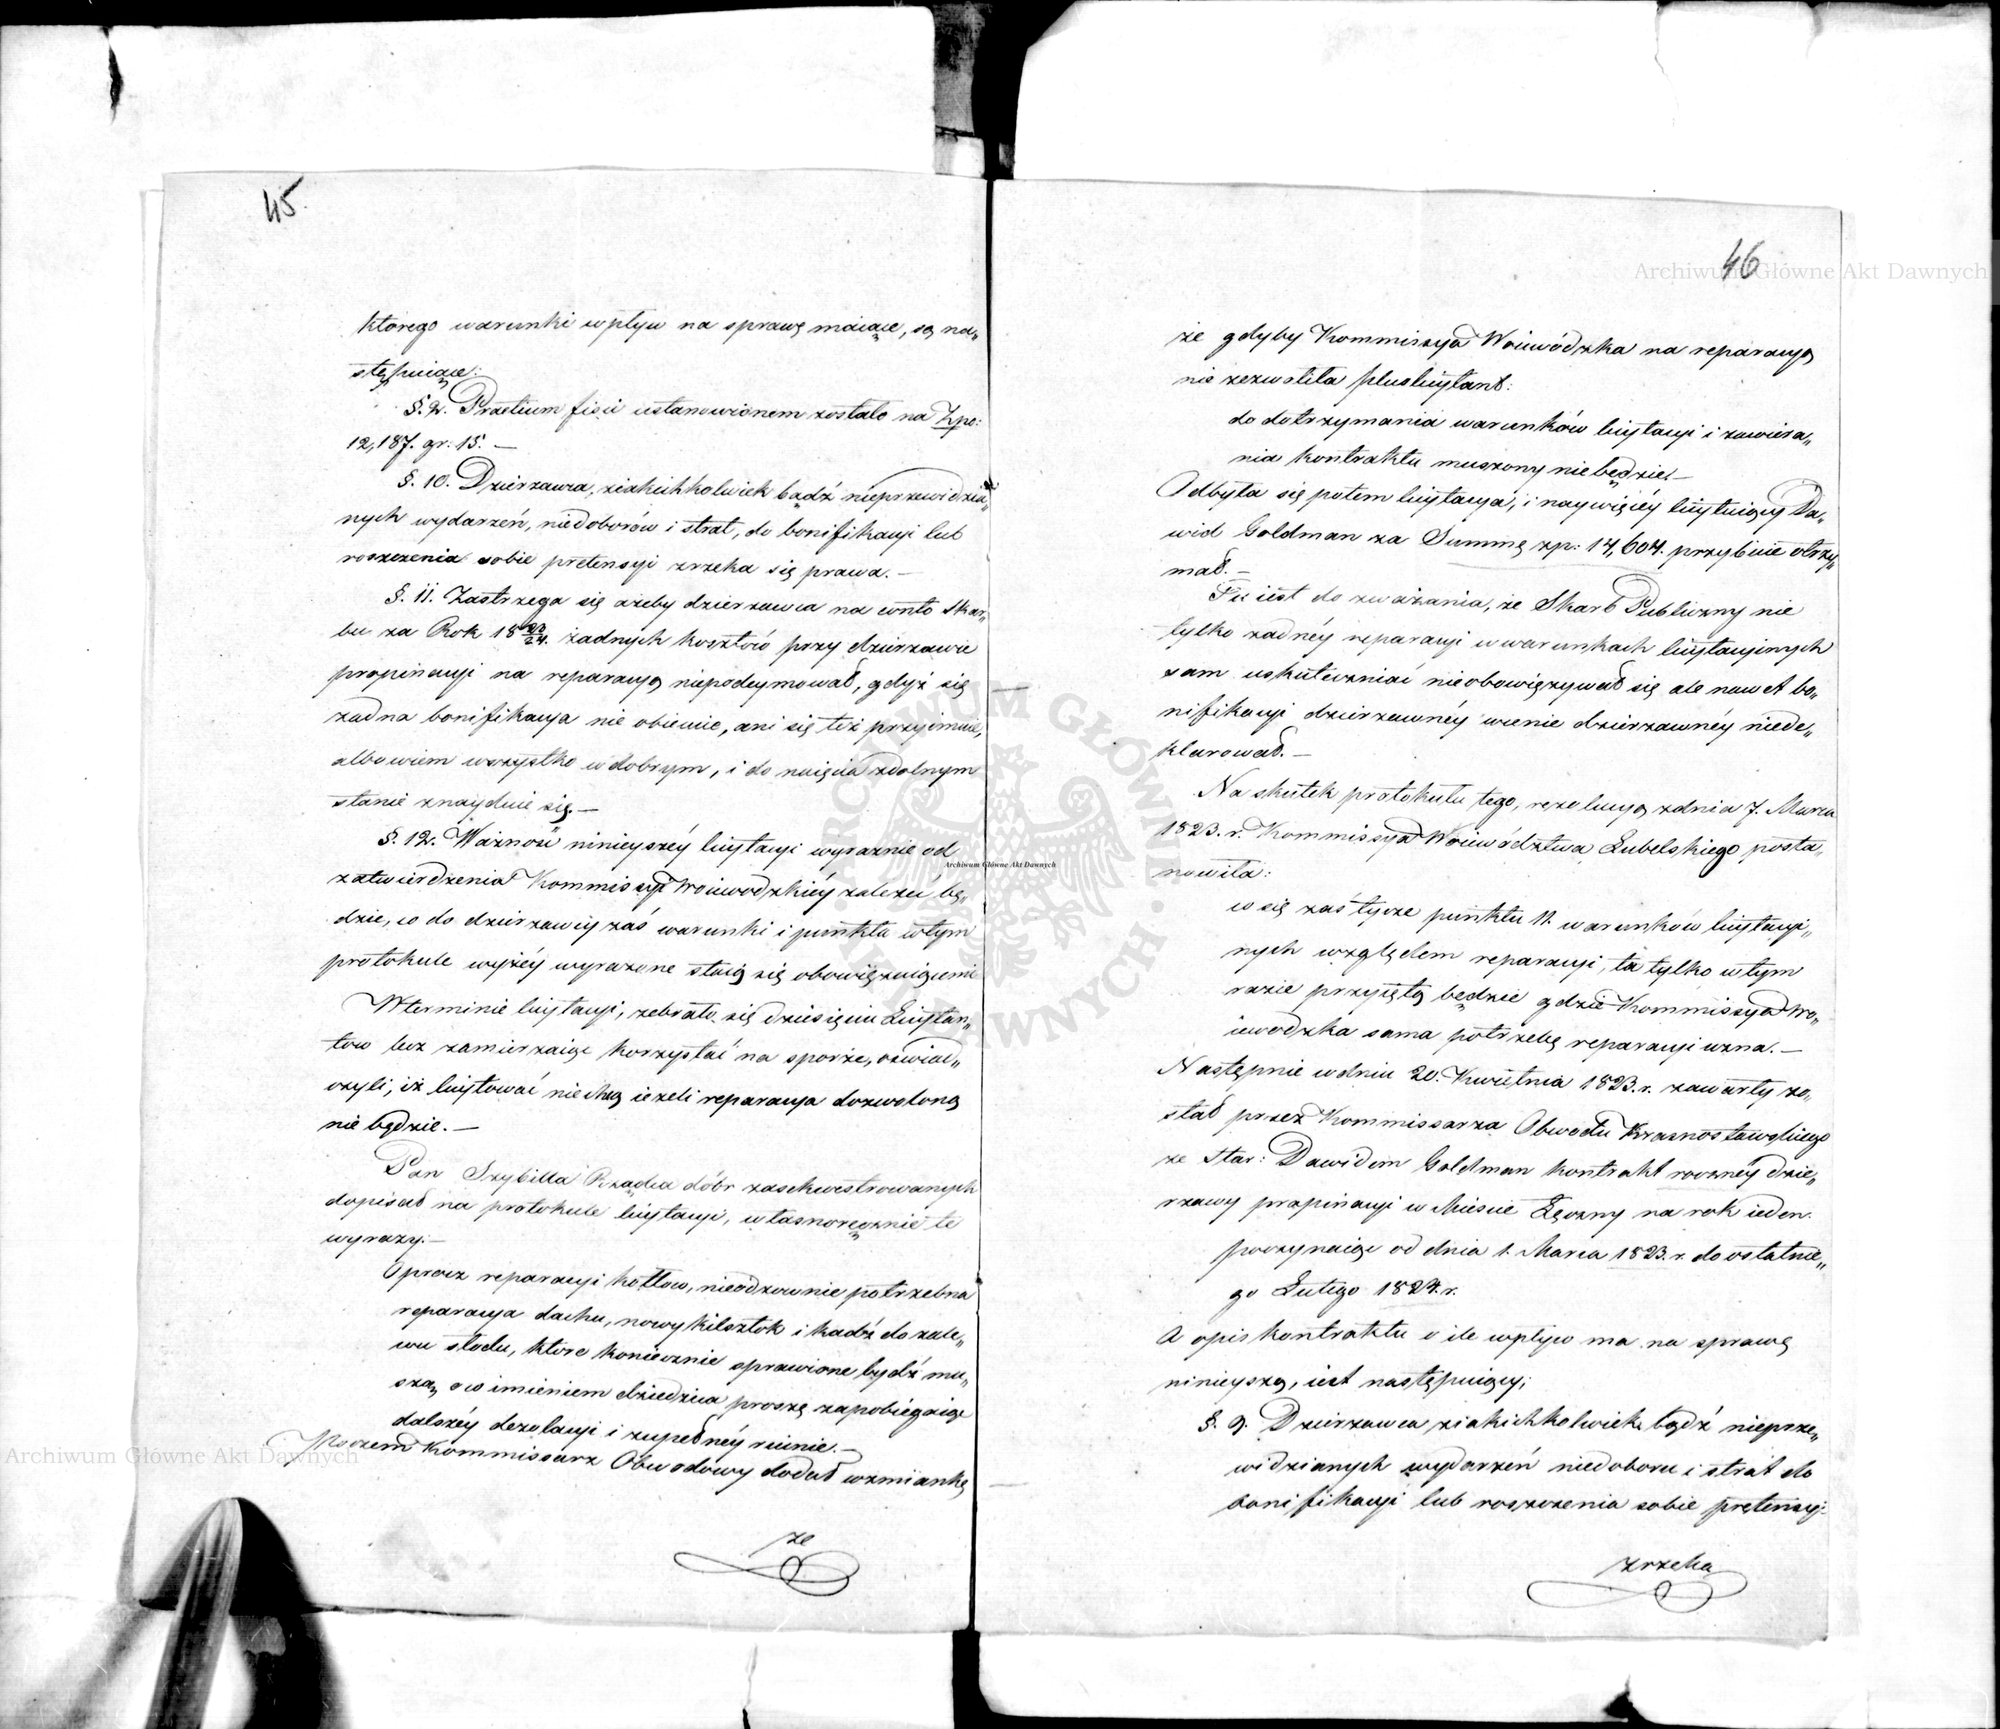 45.
którego warunki wpływ na sprawę maiące, są na„
stępuiące:
§. 2. Praetium fisci ustanowionem zostało na Zpo:
12,187. gr: 15. —
§. 10. Dzierzawca, ziakichkolwiek bądź nieprzewidzia„
nych wydarzeń, niedoborów i strat, do bonifikacyi lub
roszczenia sobie pretensyi zrzeka się prawa. —
§. 11. Zastrzega się ażeby dzierzawca na conto Skar„
bu za Rok 18 23/24. żadnych kosztów przy dzierzawie
propinacyi na reparacyą niepodeymował, gdyż się
żadna bonifikacya nie obiecuie, ani się też przyimuie,
albowiem wszystko w dobrym, i do użycia zdolnym
stanie znayduie się. —
§. 12. Ważność ninieyszéy licytacyi wyraznie od
zatwierdzenia Kommissyi Woiewodzkiéy zależeć bę„
dzie, co do dzierzawcy zaś warunki i punkta w tym
protokule wyżéy wyrażone staią się obowięzuiącemi
W terminie licytacyi, zebrało się dziesięciu Licytan„
tow lecz zamierzaiąc korzystać na sporze, oświad„
czyli, iż licytować nie chcą ieżeli reparacya dozwoloną
nie będzie. —
Pan Szybilla Rządca dóbr zasekwestrowanych
dopisał na protokule licytacyi, własnoręcznie te
wyrazy: —
Oprócz reparacyi kotłow, nieodzownie potrzebna
reparacya dachu, nowy kilsztok i kadź do zale„
wu słodu, które koniecznie sprawione bydź mu„
szą, o co imieniem dziedzica proszę zapobiegaiąc
dalszéy dezolacyi i zupełnéy ruinie. —
Poczem Kommissarz Obwodowy dodał wzmiankę
że
46
że gdyby Kommissya Woiewódzka na reparacyą
nie zezwoliła pluslicytant:
do dotrzymania warunków licytacyi i zawiera„
nia kontraktu muszony nie będzie. —
Odbyła się potem licytacya, i naywięcéy licytuiący Da„
wid Goldman za Summę zp: 14,604. przybicie otrzy„
mał. —
Tu iest do zważania, że Skarb Publiczny nie
tylko żadnéy reparacyi w warunkach licytacyinych
sam uskuteczniać nieobowięzywał się ale nawet bo„
nifikacyi dzierzawnéy w cenie dzierzawnéy niede„
klarował. —
Na skutek protokułu tego, rezolucyą z dnia 7. Marca
1823. r. Kommissya Województwa Lubelskiego posta„
nowiła:
co się zaś tycze punktu 11. warunków licytacyi„
nych względem reparacyi, ta tylko w tym
razie przyiętą będzie gdzie Kommissya Wo„
iewodzka sama potrzebę reparacyi uzna. —
Następnie w dniu 20. Kwietnia 1823. r. zawarty zo„
stał przez Kommissarza Obwodu Krasnostawskiego
ze Star: Dawidem Goldman kontrakt rocznéy dzie„
rzawy propinacyi w Mieście Łęczny na rok ieden
poczynaiąc od dnia 1. Marca 1823. r. do ostatnie„
go Lutego 1824. r.
A opis kontraktu o ile wpływ ma na sprawę
ninieyszą, iest następuiący;
§. 9. Dzierzawca ziakichkolwiek bądź nieprze„
widzianych wydarzeń niedoboru i strat do
bonifikacyi lub roszczenia sobie pretensyi
zrzeka
Archiwum Główne Akt Dawnych
Archiwum Główne Akt Dawnych
Archiwum Główne Akt Dawnych
ARCHIWUM GŁÓWNE AKT DAWNYCH